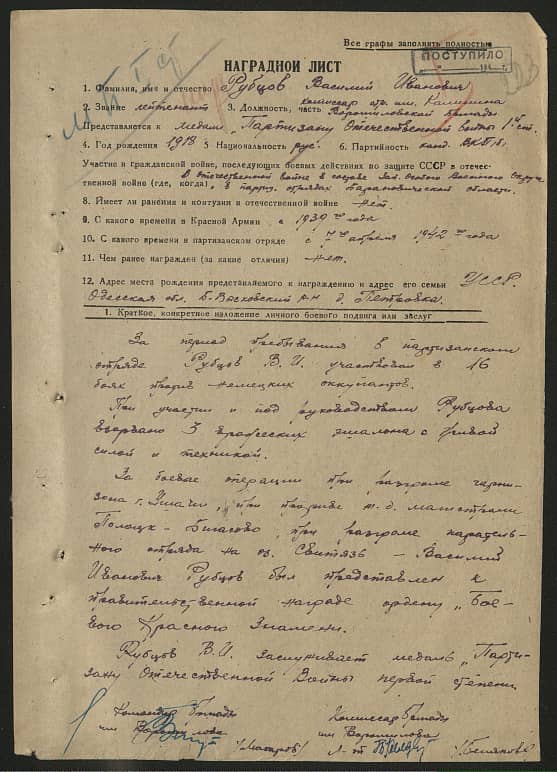 Все графы заполнить полностью
ПОСТУПИЛО
НАГРАДНОЙ ЛИСТ
1. Фамилия, имя и отчество Рубцов Василий Иванович
2. Звание лейтенант 3. Должность, часть комиссар отр. им. Калинина
Ворошиловской бригады
Представляется к медали „Партизану Отечественной войны 1ой ст.
4. Год рождения 1918 5 Национальность рус. 6. Партийность канд. ВКП/б/
Участие в гражданской войне, последующих боевых действиях по защите СССР в отечес-
твенной войне (где, когда) В отечественной войне в составе Зап. Особого Военного Округа
и в партиз. отрядах Барановической области.
8. Имеет ли ранения и контузии в отечественной войне нет.
9. С какого времени в Красной Армии с 1939 го года
10. С какого времени в партизанском отряде с апреля 1942 го года
11. Чем ранее награжден (за какие отличия) нет.
12. Адрес места рождения представляемого к награждению и адрес его семьи УССР.
Одесская обл. р-н д. Петровка.
1. Краткое, конкретное изложение личного боевого подвига или заслуг
За период пребывания в партизанском
отряде Рубцов В.И. участвовал в 16
боях против немецких оккупантов.
При участии и под руководством Рубцова
взорвано 3 вражеских эшалона с живой
силой и техникой.
За боевые операции при разгроме гарни-
зона г. Ушачи, при прорыве ж.д. магистрали
Полоцк – , при разгроме каратель-
ного отряда на оз. Свитязь – Василий
Иванович Рубцов был представлен к
правительственной награде ордену „Бое-
вого Красного Знамени.
Рубцов В.И. заслуживает медаль „Парти-
зану Отечественной Войны первой степени
Командир бригады
им Ворошилова
Комиссар бригады
им Ворошилова